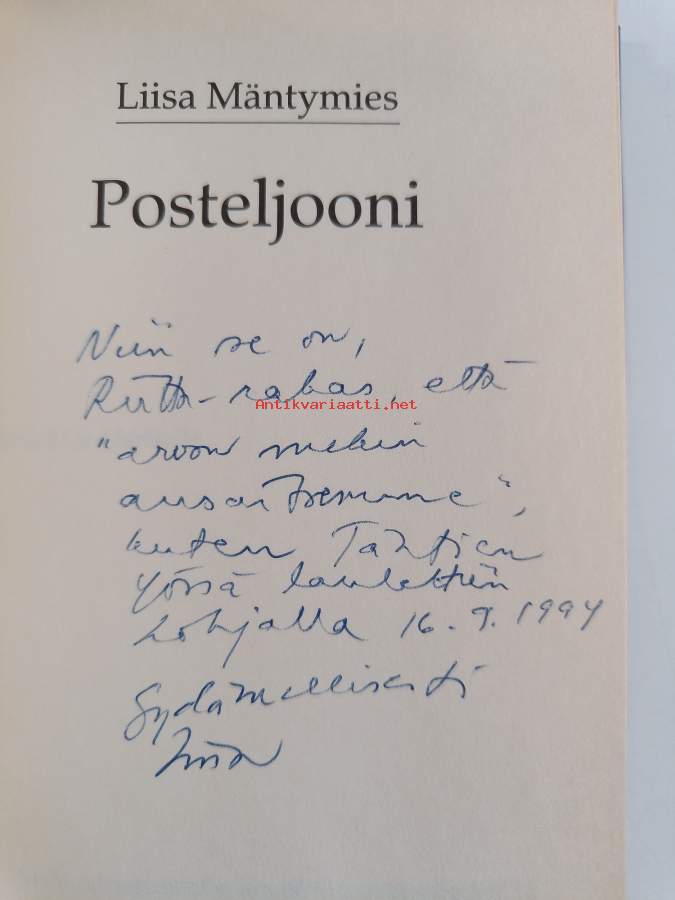 Liisa Mäntymies
Posteljooni
Niin se on,
Riitta-rakas, että
Antikvariaatti.net
"arvon mekin
ansaitsemme",
kuten Tähtien
yössä laulettiin
Lohjalla 16.9.1994
Sydämellisesti
Liisa